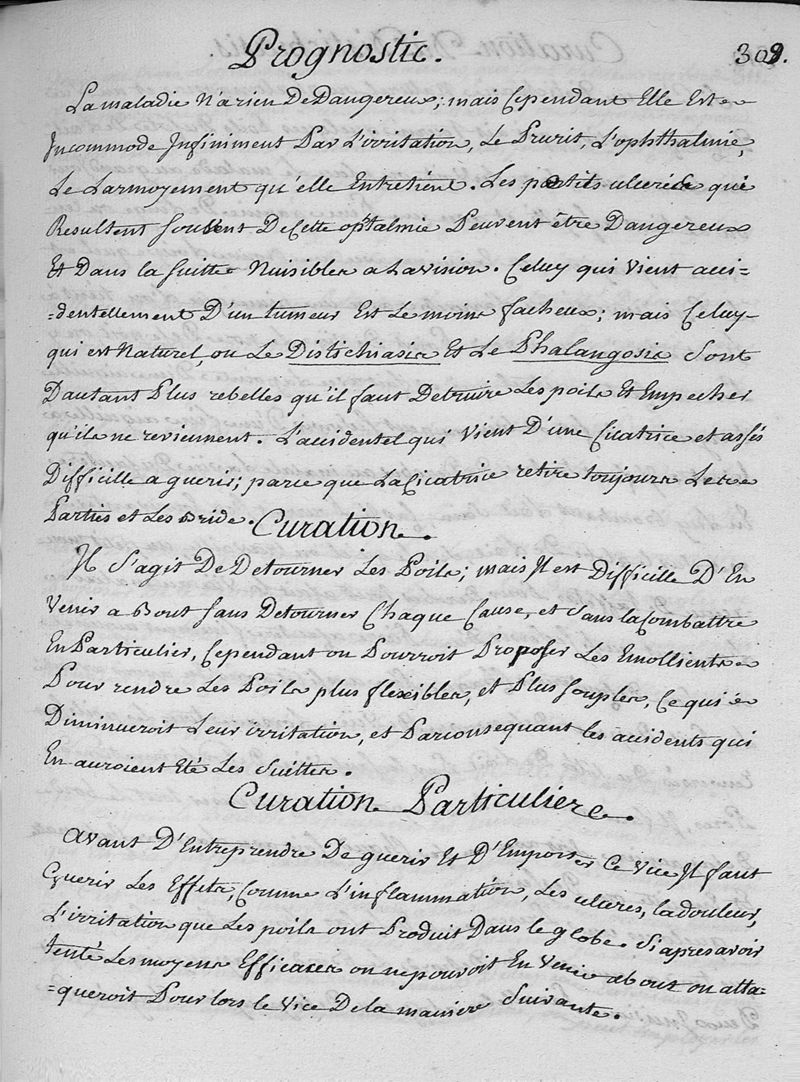 Prognostic. 309.
La maladie N'a rien De Dangereux; mais Cependant Elle Est
Incommode Infiniment Par L'irritation, Le Prurit, L'ophthalmie,
Le Larmoyement qu'elle Entretient. Les petits ulceres qui
Resultent souvent De Cette optalmie Peuvent être Dangereux
Et Dans la suitte Nuisibles a La vision. Celuy qui Vient acci=
=dentellement D'un tumeur Est Le moins facheux; mais Celuy
qui est Naturel, ou Le Distichiasis Et Le Phalangosis Sont
Dautant Plus rebelles qu'il faut Detruire Les poils Et Empecher
qu'ils ne reviennent. L'accidentel qui Vient D'une Cicatrice et assés
Difficille a guerir; parce que La Cicatrice retire toujours Les
Parties et Les Bride.
Curation.
Il S'agit De Detourner Les Poils; mais Il est Difficille D'En
Venir a Bout sans Detourner Chaque Cause, et sans la Combattre
En Particulier, Cependant on Pourroit Proposer Les Emollients
Pour rendre Les Poils plus flexibles, et Plus souples, Ce qui
Diminueroit Leur irritation, et Par consequant les accidents qui
En auroient Eté Les Suittes.
Curation Particuliere.
Avant D'Entreprendre De guerir Et D'Emporter Ce Vice Il faut
Guerir Les Effets, Comme L'inflammation, Les ulceres, la douleur,
L'irritation que Les poils ont Produit Dans le globe. Si apres avoir
tenté Les moyens Efficaces on ne pouvoit En Venir a bout on atta=
=queroit Pour lors le Vice De la maniere Suivante.